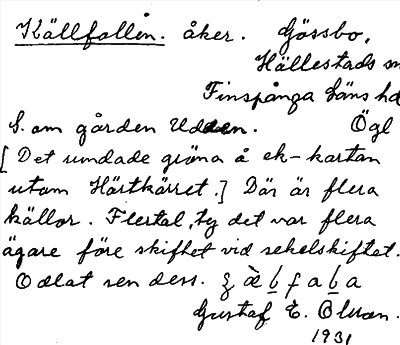 Källfallen. åker. Gössbo,
Hällestads sn
Finspånga läns hd
S. om gården Udden. Ögl
[Det rundade gröna å ek-kartan
utom Hörtkärret.] Där är flera
källor. Flertal, ty det var flera
ägare före skiftet vid sekelskiftet.
Odlat sen dess.
Gustaf E. Olsson.
1931